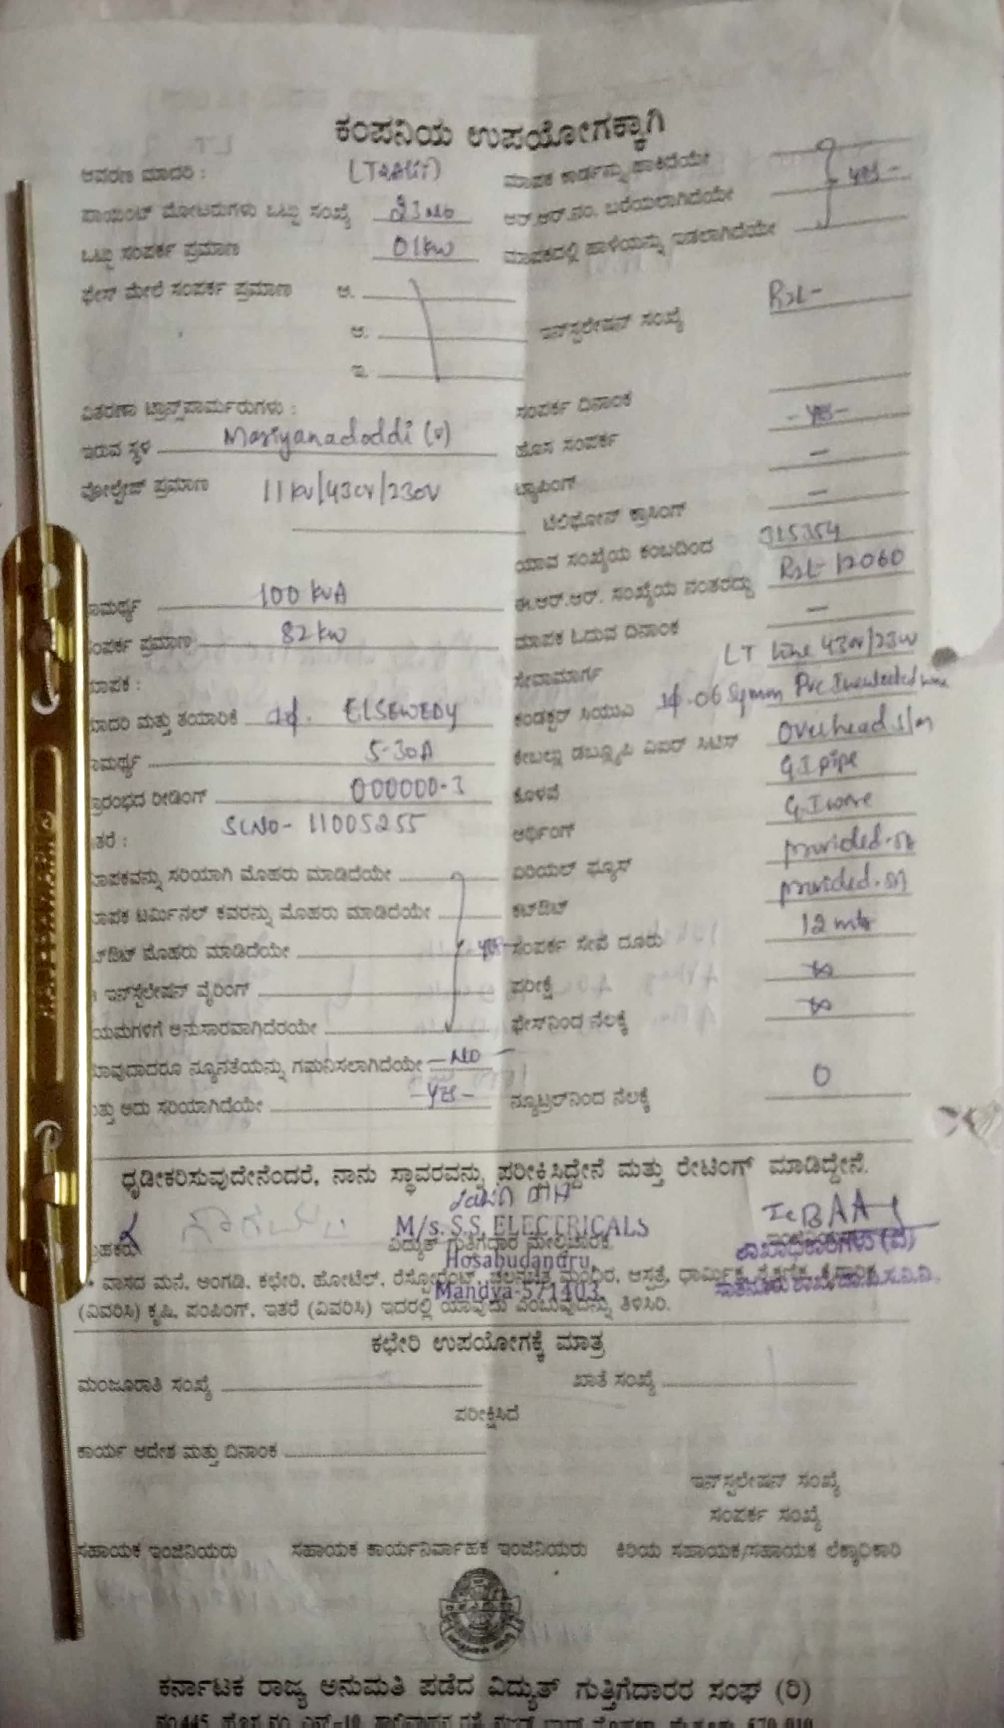 ಕಂಪನಿಯ ಉಪಯೋಗಕ್ಕಾಗಿ
ಆವರಣ ಮಾದರಿ :
ಮಾಪಕ ಕಾರ್ಡನ್ನು ಹಾಕಿದೆಯೇ
ಪಾಯಿಂಟ್ ಮೋಟರುಗಳು ಒಟ್ಟು ಸಂಖ್ಯೆ
ಆರ್.ಆರ್.ನಂ. ಬರೆಯಲಾಗಿದೆಯೇ - yes -
ಒಟ್ಟು ಸಂಪರ್ಕ ಪ್ರಮಾಣ 01kw
ಮಾಪಕದಲ್ಲಿ ಹಾಳೆಯನ್ನು ಇಡಲಾಗಿದೆಯೇ
ಫೇಸ್ ಮೇಲೆ ಸಂಪರ್ಕ ಪ್ರಮಾಣ ಅ.
ಆ.
ಇ.
ಇನ್‌ಸ್ಟಲೇಷನ್ ಸಂಖ್ಯೆ
ವಿತರಣಾ ಟ್ರಾನ್ಸ್‌ಫಾರ್ಮರುಗಳು :
ಸಂಪರ್ಕ ದಿನಾಂಕ
ಇರುವ ಸ್ಥಳ Mariyanadoddi (v)
ಹೊಸ ಸಂಪರ್ಕ - yes -
ವೋಲ್ಟೇಜ್ ಪ್ರಮಾಣ 11kv/430v/230v
ಟ್ಯಾಪಿಂಗ್ -
ಟೆಲಿಫೋನ್ ಕ್ರಾಸಿಂಗ್ -
ಯಾವ ಸಂಖ್ಯೆಯ ಕಂಬದಿಂದ 315354
ಸಾಮರ್ಥ್ಯ 100 kvA
ಈ.ಆರ್.ಆರ್. ಸಂಖ್ಯೆಯ ನಂತರದ್ದು 12060
ಸಂಪರ್ಕ ಪ್ರಮಾಣ 82 kw
ಮಾಪಕ ಓದುವ ದಿನಾಂಕ -
ಮಾಪಕ :
ಸೇವಾಮಾರ್ಗ LT Line 430v/230v
ಮಾದರಿ ಮತ್ತು ತಯಾರಿಕೆ ELSEWEDY
ಕಂಡಕ್ಟರ್ ಸಿಯುಎ 1φ. 06 Sqmm Pvc
ಸಾಮರ್ಥ್ಯ 5-30A
Overhead
ಪ್ರಾರಂಭದ ರೀಡಿಂಗ್ 000000.3
ಕೊಳವೆ G.I pipe
ಇತರೆ : SLNO- 11005255
ಅರ್ಥಿಂಗ್ G.I wire
ಮಾಪಕವನ್ನು ಸರಿಯಾಗಿ ಮೊಹರು ಮಾಡಿದೆಯೇ
ಏರಿಯಲ್ ಫ್ಯೂಸ್ provided
ಮಾಪಕ ಟರ್ಮಿನಲ್ ಕವರನ್ನು ಮೊಹರು ಮಾಡಿದೆಯೇ
ಕಟ್‌ಔಟ್ provided
ಕಟ್‌ಔಟ್ ಮೊಹರು ಮಾಡಿದೆಯೇ - yes -
ಸಂಪರ್ಕ ಸೇವೆ ದೂರು 12 mtr
ಇನ್‌ಸ್ಟಲೇಶನ್ ವೈರಿಂಗ್
ಪರೀಕ್ಷೆ ∞
ನಿಯಮಗಳಿಗೆ ಅನುಸಾರವಾಗಿದೆರಯೇ
ಫೇಸ್‌ನಿಂದ ನೆಲಕ್ಕೆ ∞
ಯಾವುದಾದರೂ ನ್ಯೂನತೆಯನ್ನು ಗಮನಿಸಲಾಗಿದೆಯೇ - NO -
ಮತ್ತು ಅದು ಸರಿಯಾಗಿದೆಯೇ - yes -
ನ್ಯೂಟ್ರಲ್‌ನಿಂದ ನೆಲಕ್ಕೆ 0
ಧೃಡೀಕರಿಸುವುದೇನೆಂದರೆ, ನಾನು ಸ್ಥಾವರವನ್ನು ಪರೀಕ್ಷಿಸಿದ್ದೇನೆ ಮತ್ತು ರೇಟಿಂಗ್ ಮಾಡಿದ್ದೇನೆ.
M/s. S.S. ELECTRICALS
ಗ್ರಾಹಕರು ವಿದ್ಯುತ್ ಗುತ್ತಿಗೆದಾರ ಮೇಲ್ವಿಚಾರಕ
ಶಾಖಾಧಿಕಾರಿಗಳು (ವಿ)
Hosabudandru
* ವಾಸದ ಮನೆ, ಅಂಗಡಿ, ಕಛೇರಿ, ಹೋಟೆಲ್, ರೆಸ್ಟೋರೆಂಟ್, ಚಲನಚಿತ್ರ ಮಂದಿರ, ಆಸ್ಪತ್ರೆ, ಧಾರ್ಮಿಕ,
Mandya-571403.
(ವಿವರಿಸಿ) ಕೃಷಿ, ಪಂಪಿಂಗ್, ಇತರೆ (ವಿವರಿಸಿ) ಇದರಲ್ಲಿ ಯಾವುದು ಎಂಬುವುದನ್ನು ತಿಳಿಸಿರಿ.
ಕಛೇರಿ ಉಪಯೋಗಕ್ಕೆ ಮಾತ್ರ
ಮಂಜೂರಾತಿ ಸಂಖ್ಯೆ
ಖಾತೆ ಸಂಖ್ಯೆ
ಪರೀಕ್ಷಿಸಿದೆ
ಕಾರ್ಯ ಆದೇಶ ಮತ್ತು ದಿನಾಂಕ
ಇನ್‌ಸ್ಟಲೇಷನ್ ಸಂಖ್ಯೆ
ಸಂಪರ್ಕ ಸಂಖ್ಯೆ
ಸಹಾಯಕ ಇಂಜಿನಿಯರು ಸಹಾಯಕ ಕಾರ್ಯನಿರ್ವಾಹಕ ಇಂಜಿನಿಯರು ಕಿರಿಯ ಸಹಾಯಕ/ಸಹಾಯಕ ಲೆಕ್ಕಾಧಿಕಾರಿ
ಕರ್ನಾಟಕ ರಾಜ್ಯ ಅನುಮತಿ ಪಡೆದ ವಿದ್ಯುತ್ ಗುತ್ತಿಗೆದಾರರ ಸಂಘ (ರಿ)